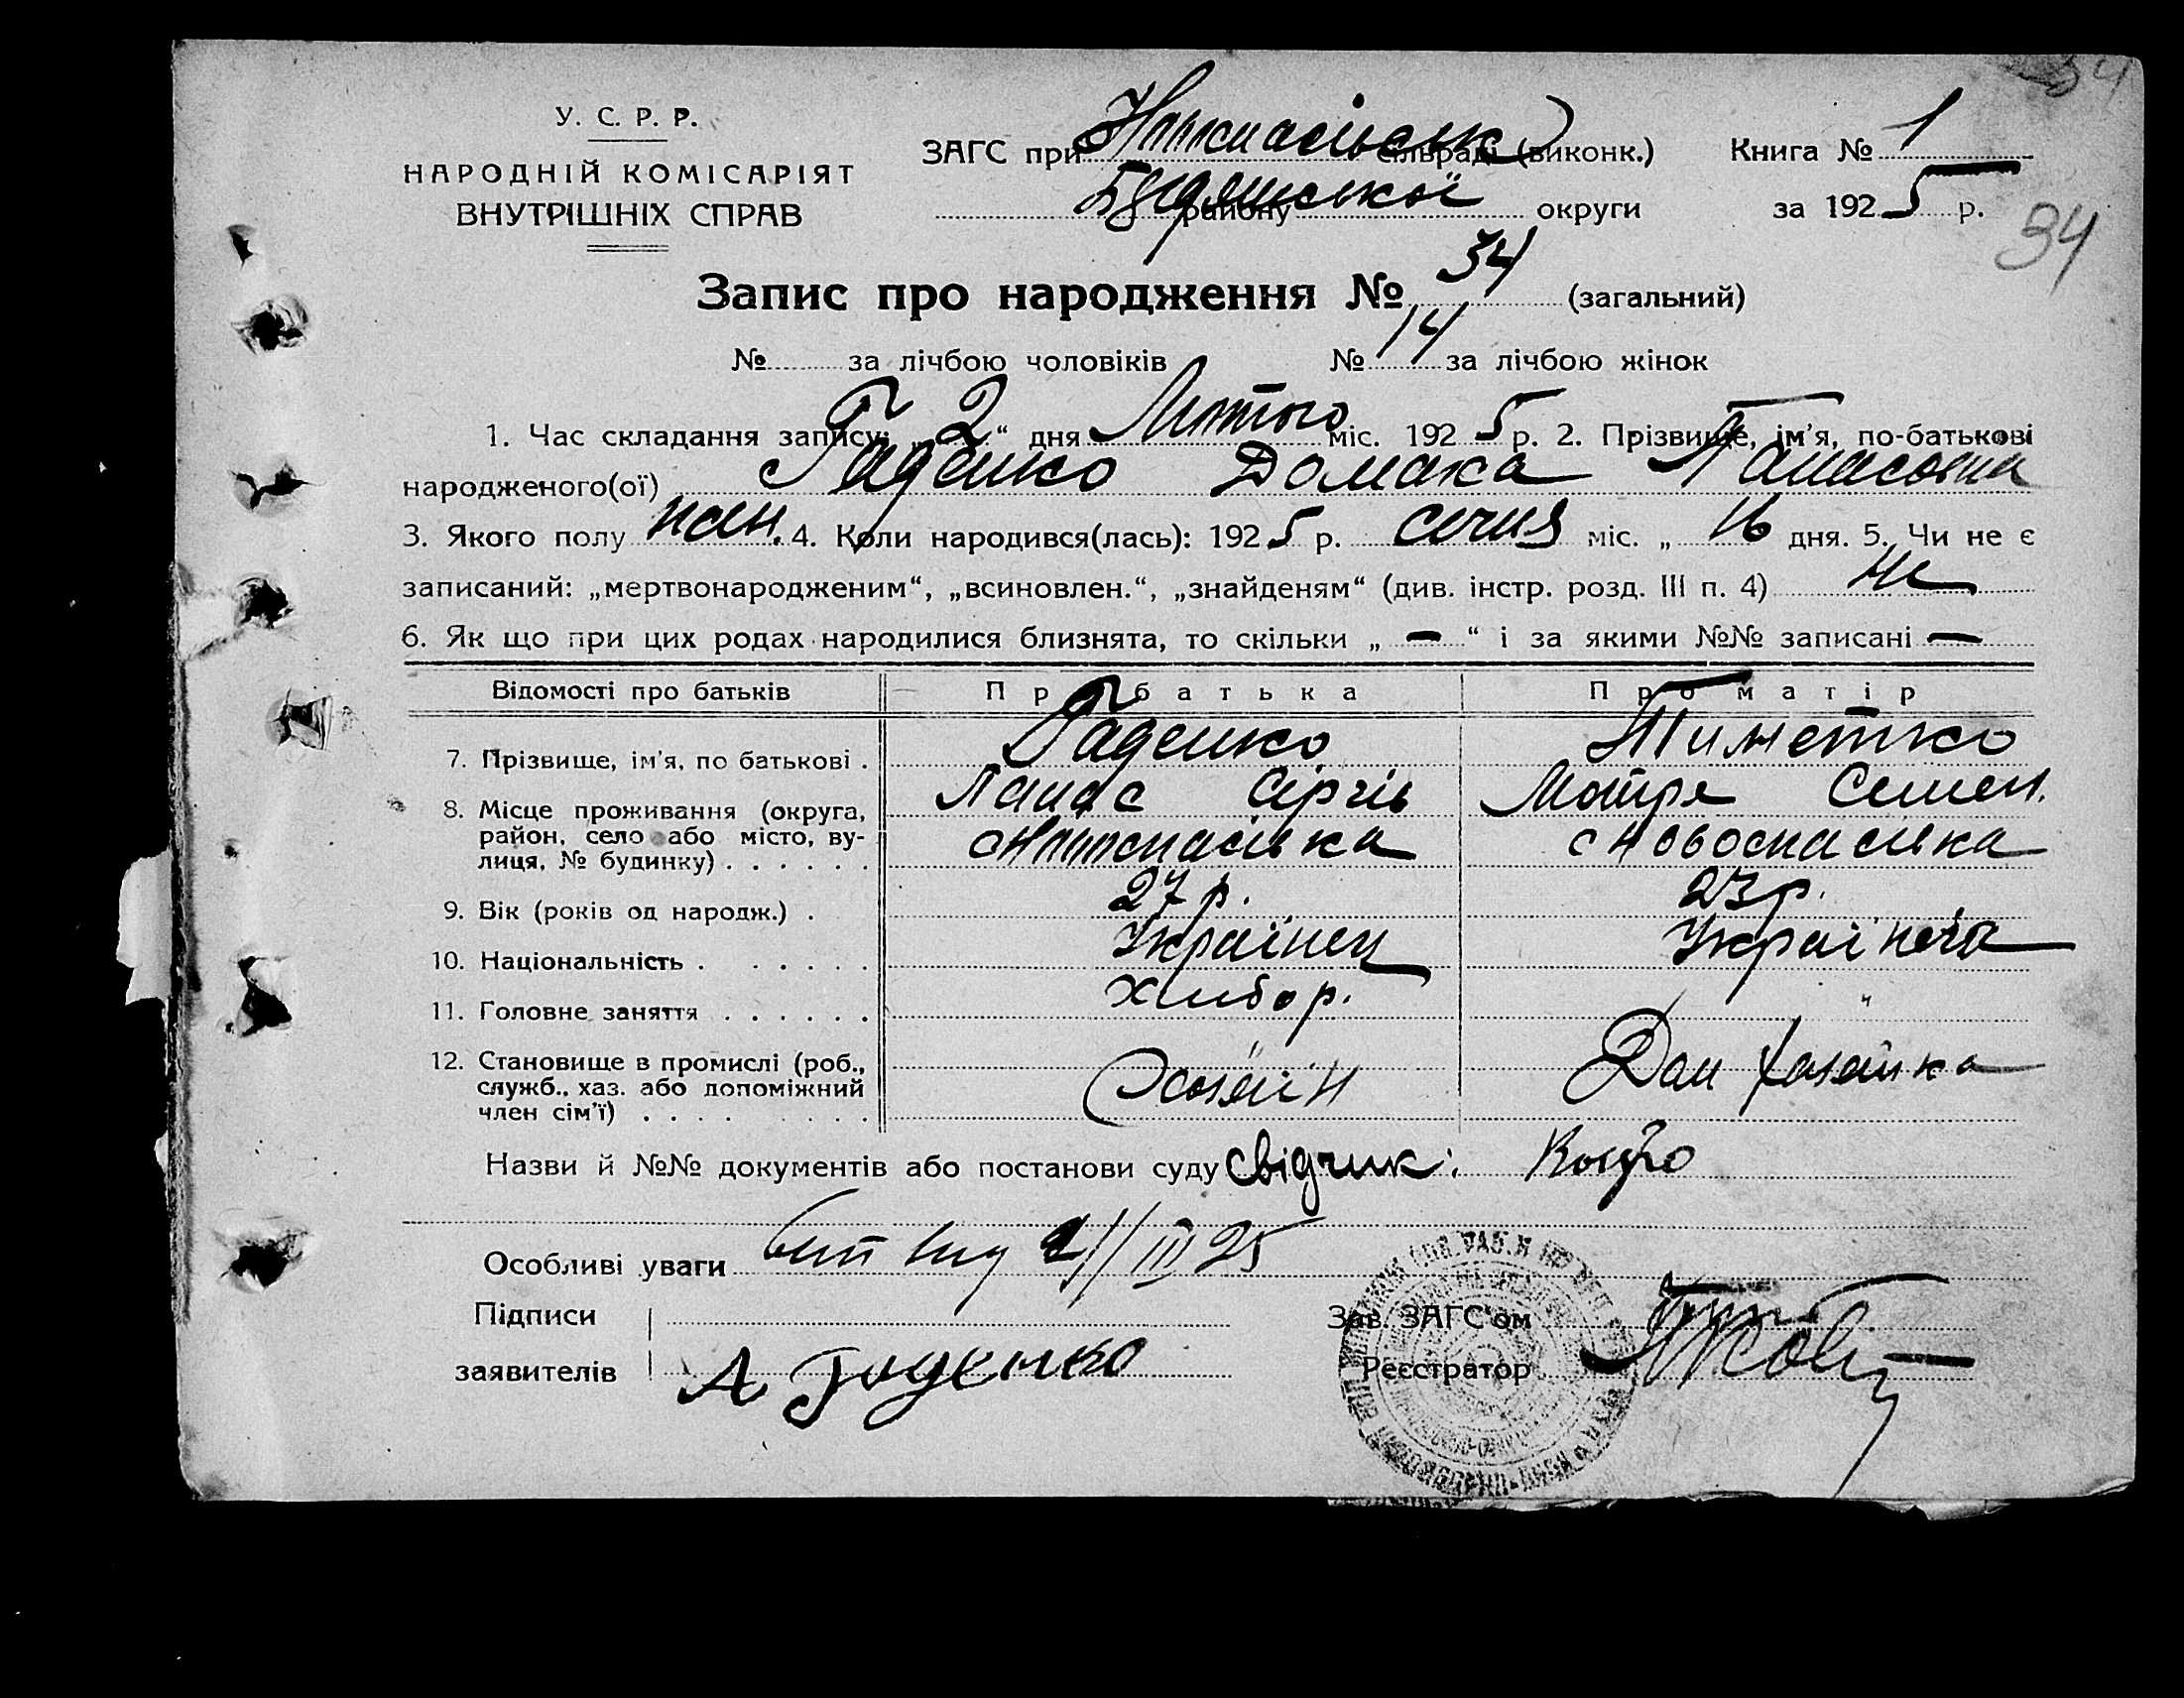 34
У. С. Р. Р.
НАРОДНІЙ КОМІСАРІЯТ
ВНУТРІШНІХ СПРАВ
ЗАГС при сільраді (виконк.)
району округи
Книга № 1
за 1925 р.
34
Запис про народження № 34 (загальний)
№ за лічбою чоловіків № 14 за лічбою жінок
1. Час складання запису: „ 2 “ дня Лютого міс. 1925 р. 2. Прізвище, ім'я, по-батькові
народженого(ої) Гаденко Домаха Панасовна
3. Якого полу жін. 4. Коли народився(лась): 1925 р. січня міс. „ 16 дня. 5. Чи не є
записаний: „мертвонародженим“, „всиновлен.“, „знайденям“ (див. інстр. розд. III п. 4) Не
6. Як що при цих родах народилися близнята, то скільки „ — “ і за якими №№ записані —
Відомості про батьків Про батька Про матір
7. Прізвище, ім'я, по батькові . Гаденко
Панас Сергів Мотря Семен.
8. Місце проживання (округа, район, село або місто, вулиця, № будинку) . . . . . . с Новоспасівка
9. Вік (років од народж.) . 27 р. 23 р.
10. Національність . . . . . . Українец Українка
11. Головне заняття . . . . . . хлібор. "
12. Становище в промислі (роб., служб., хаз. або допоміжний член сім'ї) . . . . . . . . Хозяїн Дом хазяйка
Назви й №№ документів або постанови суду Свідчик:
Особливі уваги III 25
Підписи
заявителів А Гаденко
Зав. ЗАГС'ом
Реєстратор